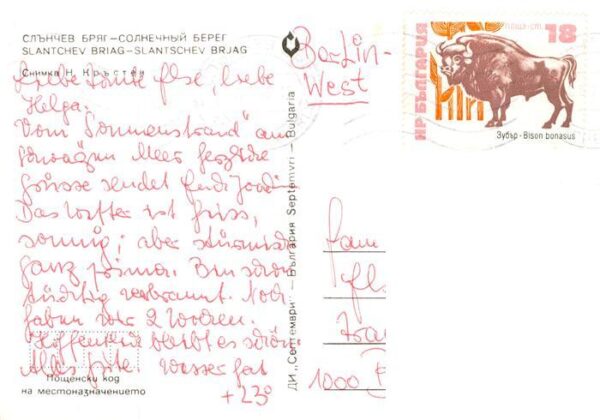 СЛЪНЧЕВ БРЯГ—СОЛНЕЧНЫЙ БЕРЕГ
SLANTCHEV BRIAG—SLANTSCHEV BRJAG
Снимка Н. Кръстев
Liebe Tante Else, liebe
Helga.
Vom "Sonnenstrand" am
schwarzen Meer
Grüsse sendet
Das Wetter ist
sonnig; aber stürmisch
ganz prima. Bin schon
tüchtig verbrannt. Noch
haben wir 2 Wochen.
Hoffentlich bleibt es schön.
Alles Gute. Wasser hat
+23°
Пощенски код
на местоназначението
ДИ „Септември" — България Septemvri — Bulgaria
Berlin-
West
1000
НР БЪЛГАРИЯ
ПОЩА·СТ. 18
Зубър - Bison bonasus